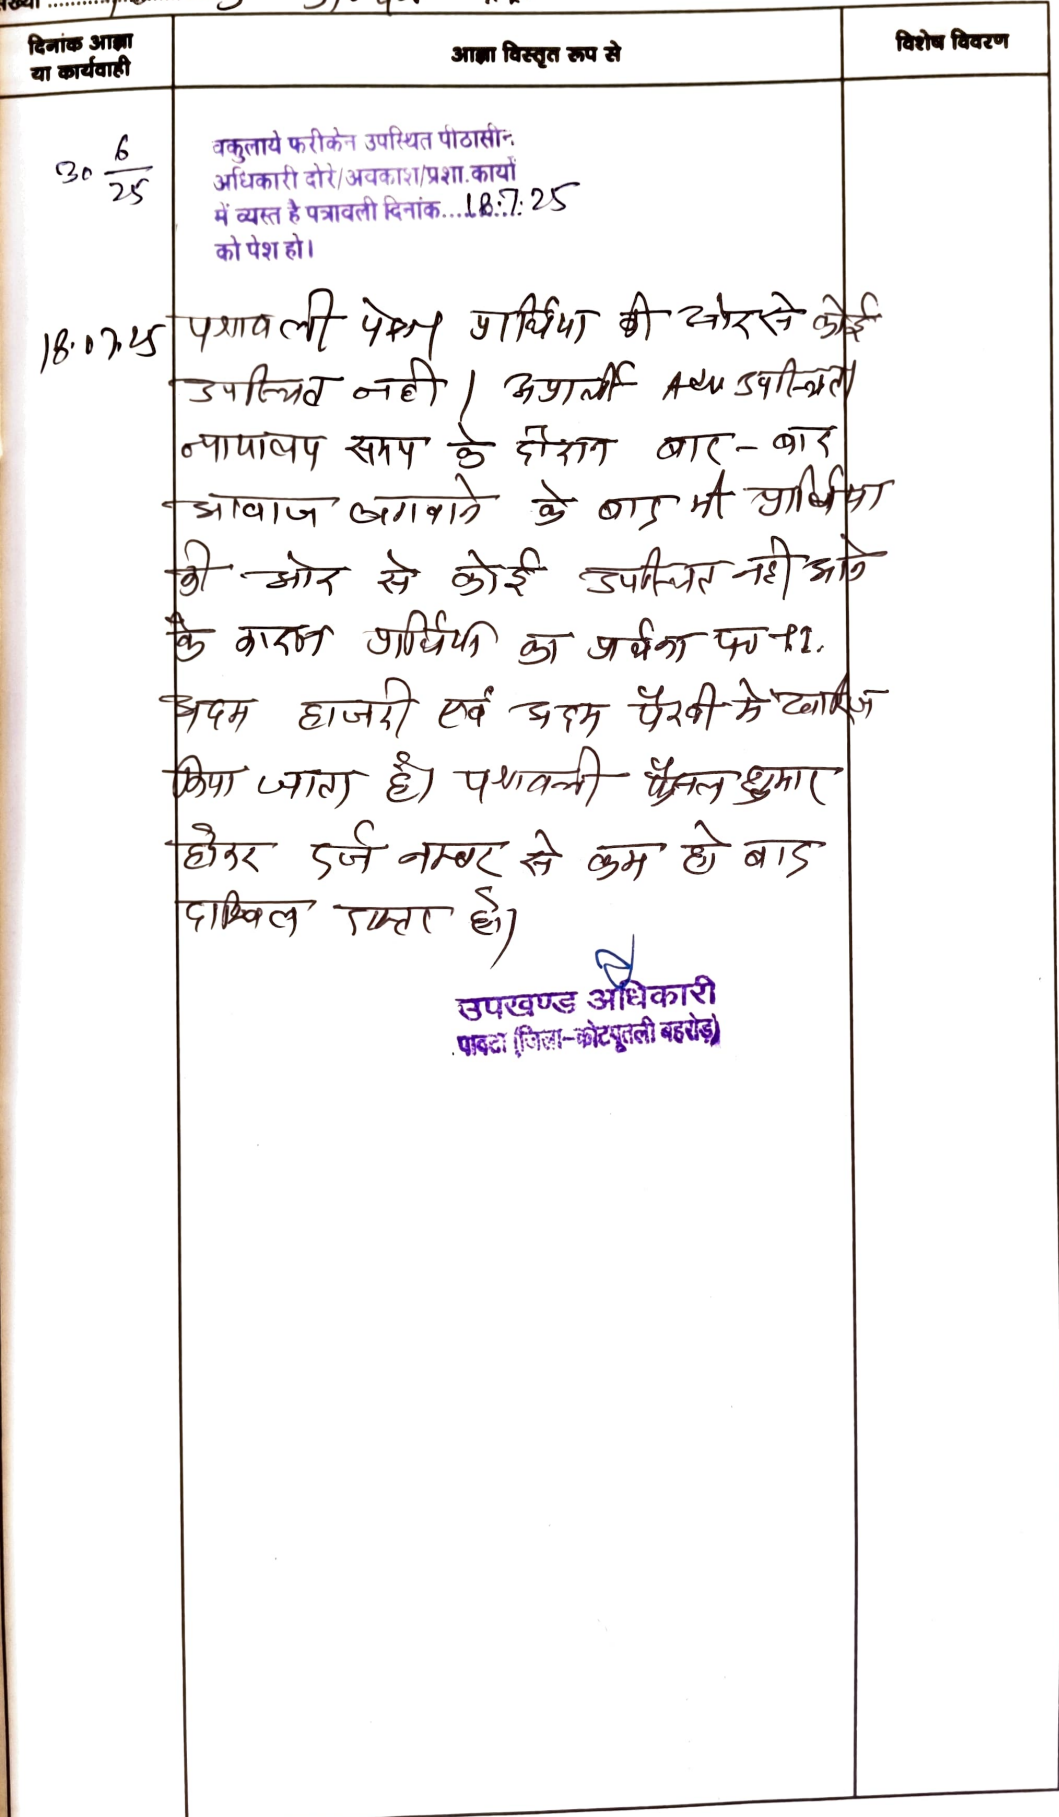 दिनांक आज्ञा
या कार्यवाही
आज्ञा विस्तृत रूप से
विशेष विवरण
30 6/25
वकुलाये फरीकेन उपस्थित पीठासीन
अधिकारी दोरे/अवकाश/प्रशा.कार्यो
में व्यस्त है पत्रावली दिनांक....18.7.25
को पेश हो।
18.07.25
पत्रावली पेश। प्रार्थिया की ओर से कोई
उपस्थित नही। अप्रार्थी Adv उपस्थित।
न्यायालय समय के दौरान बार-बार
आवाज लगवाने के बाद भी प्रार्थिया
की ओर से कोई उपस्थित नही आने
के कारण प्रार्थिया का प्रार्थना पत्र
अदम हाजरी एवं अदम पैरवी मे खारिज
किया जाता है। पत्रावली फैसल शुमार
होकर दर्ज नम्बर से कम हो बाद
दाखिल दफ्तर हो।
उपखण्ड अधिकारी
पावटा (जिला-कोटपूतली बहरोड़)